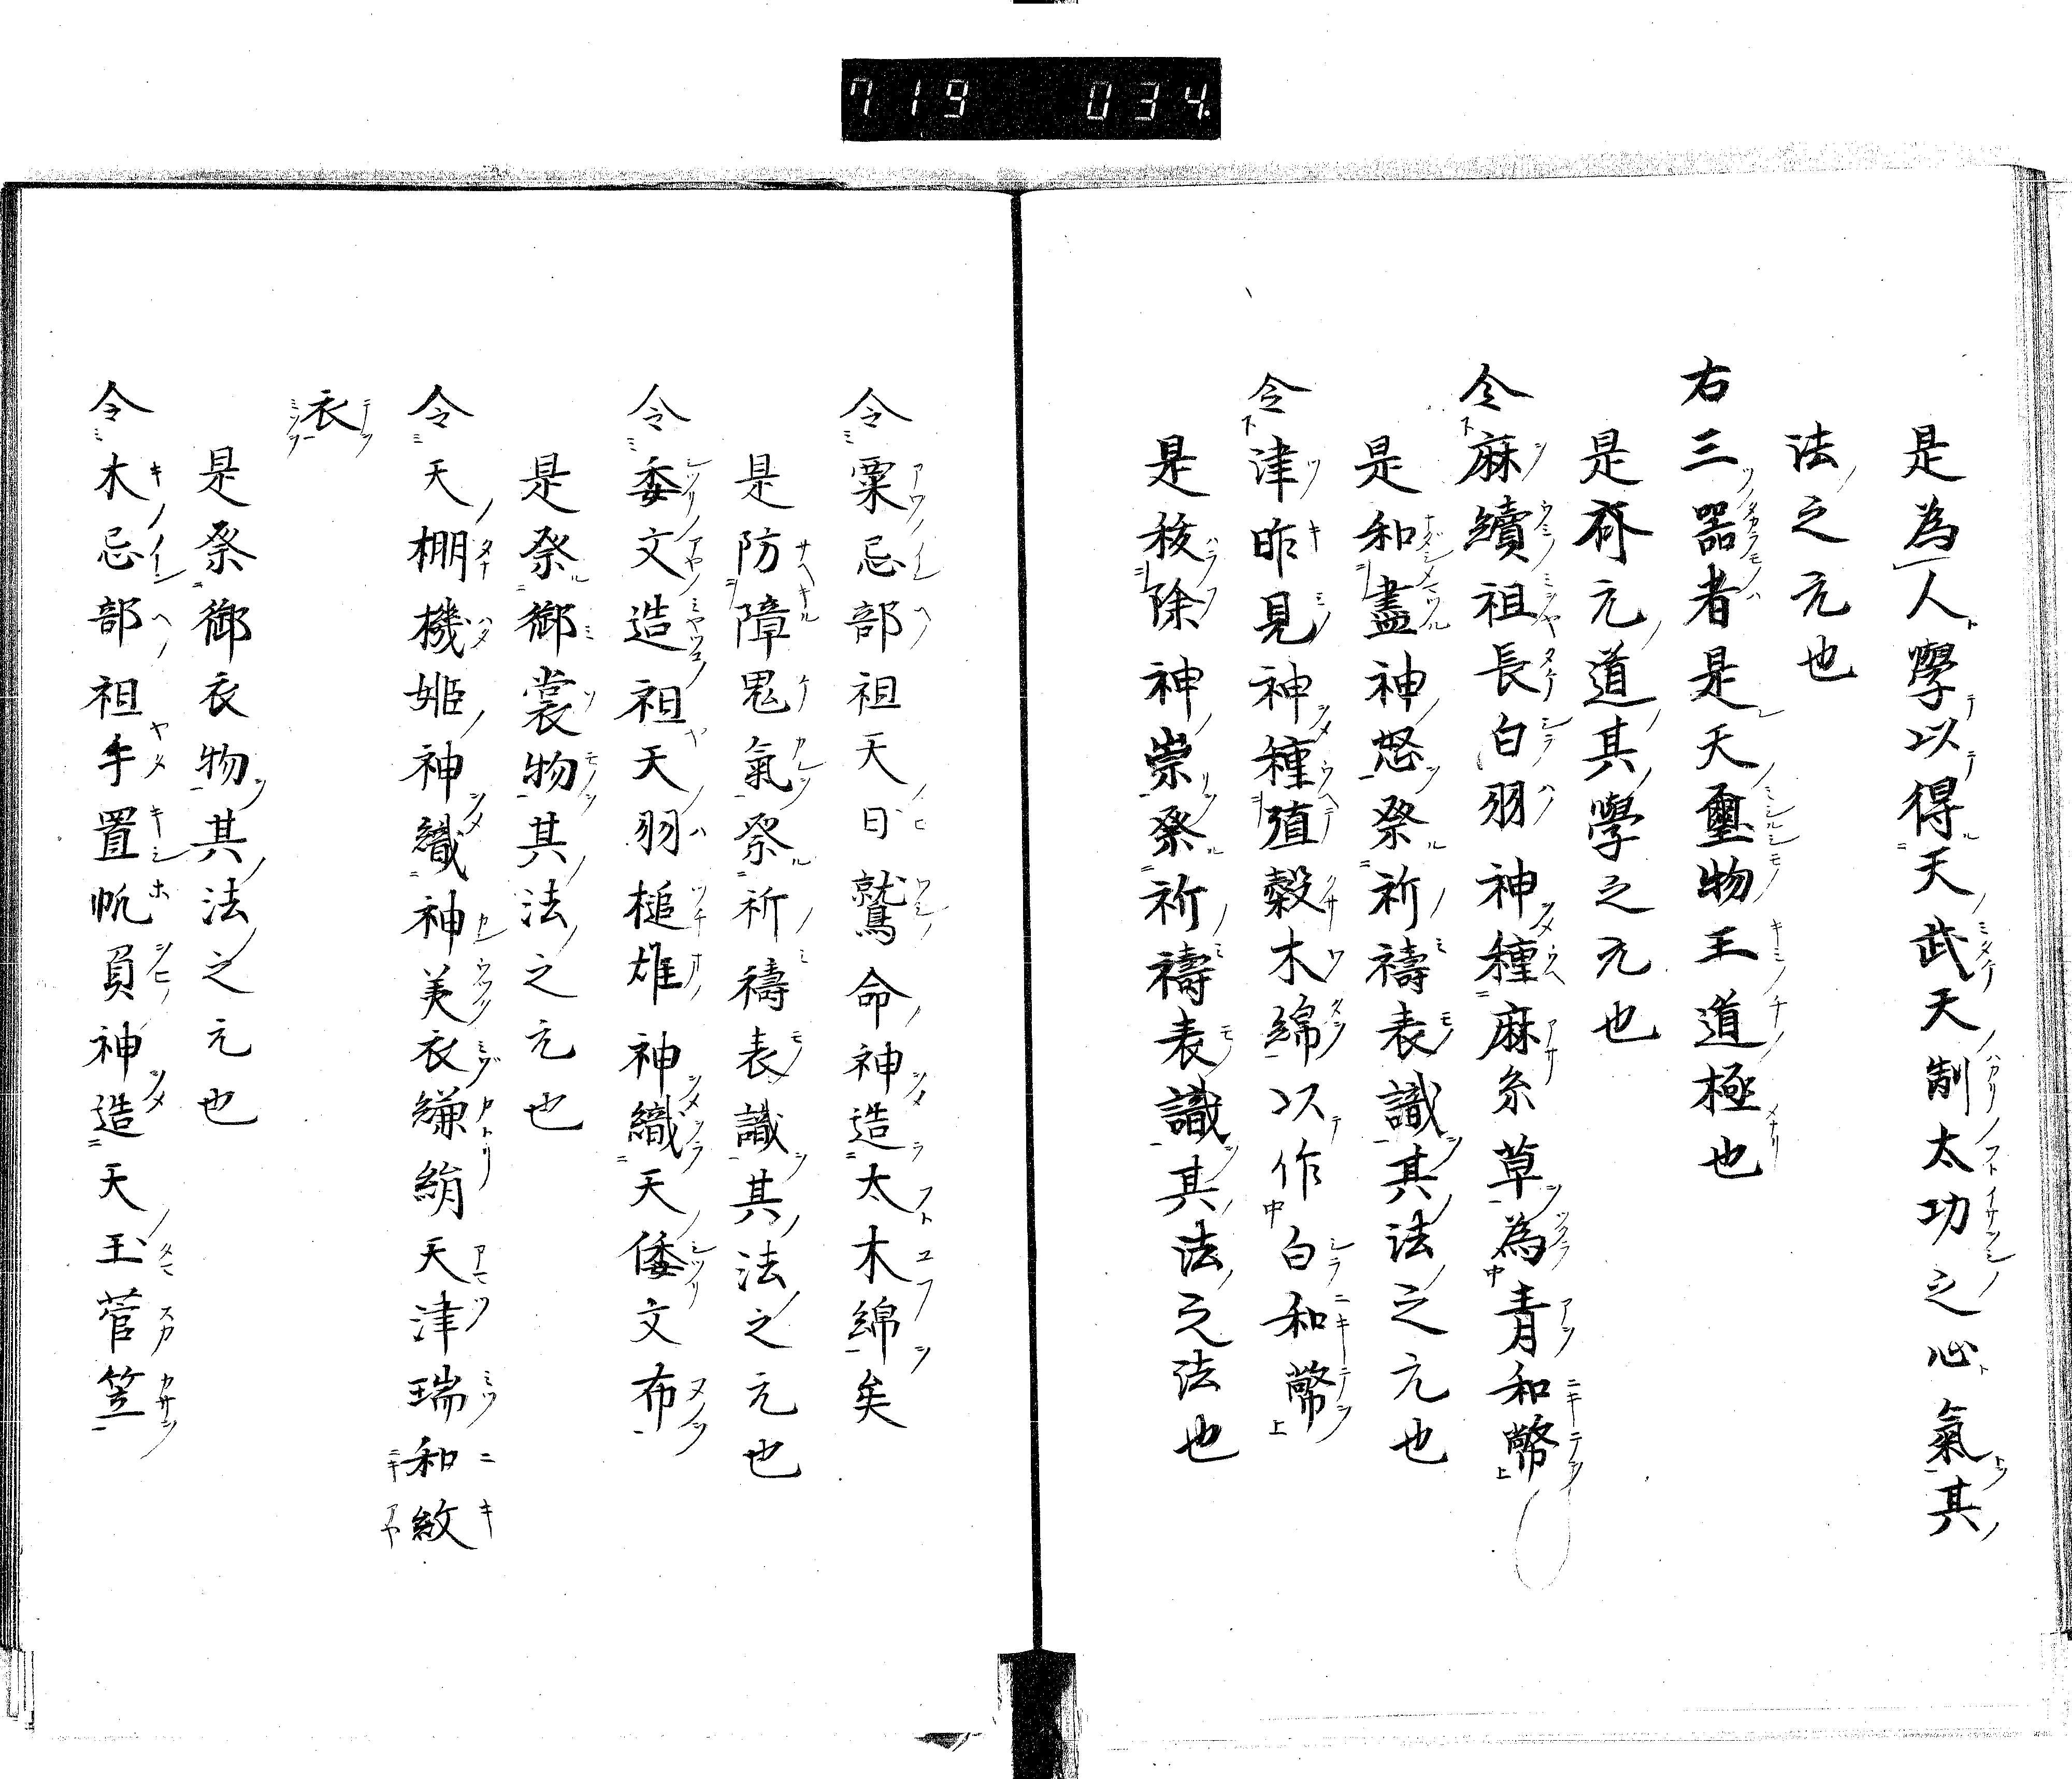 719 034.
是為人學以得天武天制太功之心氣其
法之元也
右三器者是天璽物王道極也
是齊元道其學之元也
令麻續祖長白羽神種麻糸草為青和幣
是和盡神怒祭祈禱表識其法之元也
令津咋見神種殖穀木綿以作白和幣
是祓除神崇祭祈禱表識其法之元法也
令粟忌部祖天日鷲命神造太木綿矣
是防障鬼氣祭祈禱表識其法之元也
令委文造祖天羽槌雄神織天倭文布
是祭御裳物其法之元也
令天棚機姬神織神美衣縑絹天津瑞和紋
衣
是祭御衣物其法之元也
令木忌部祖手置帆負神造天玉菅笠